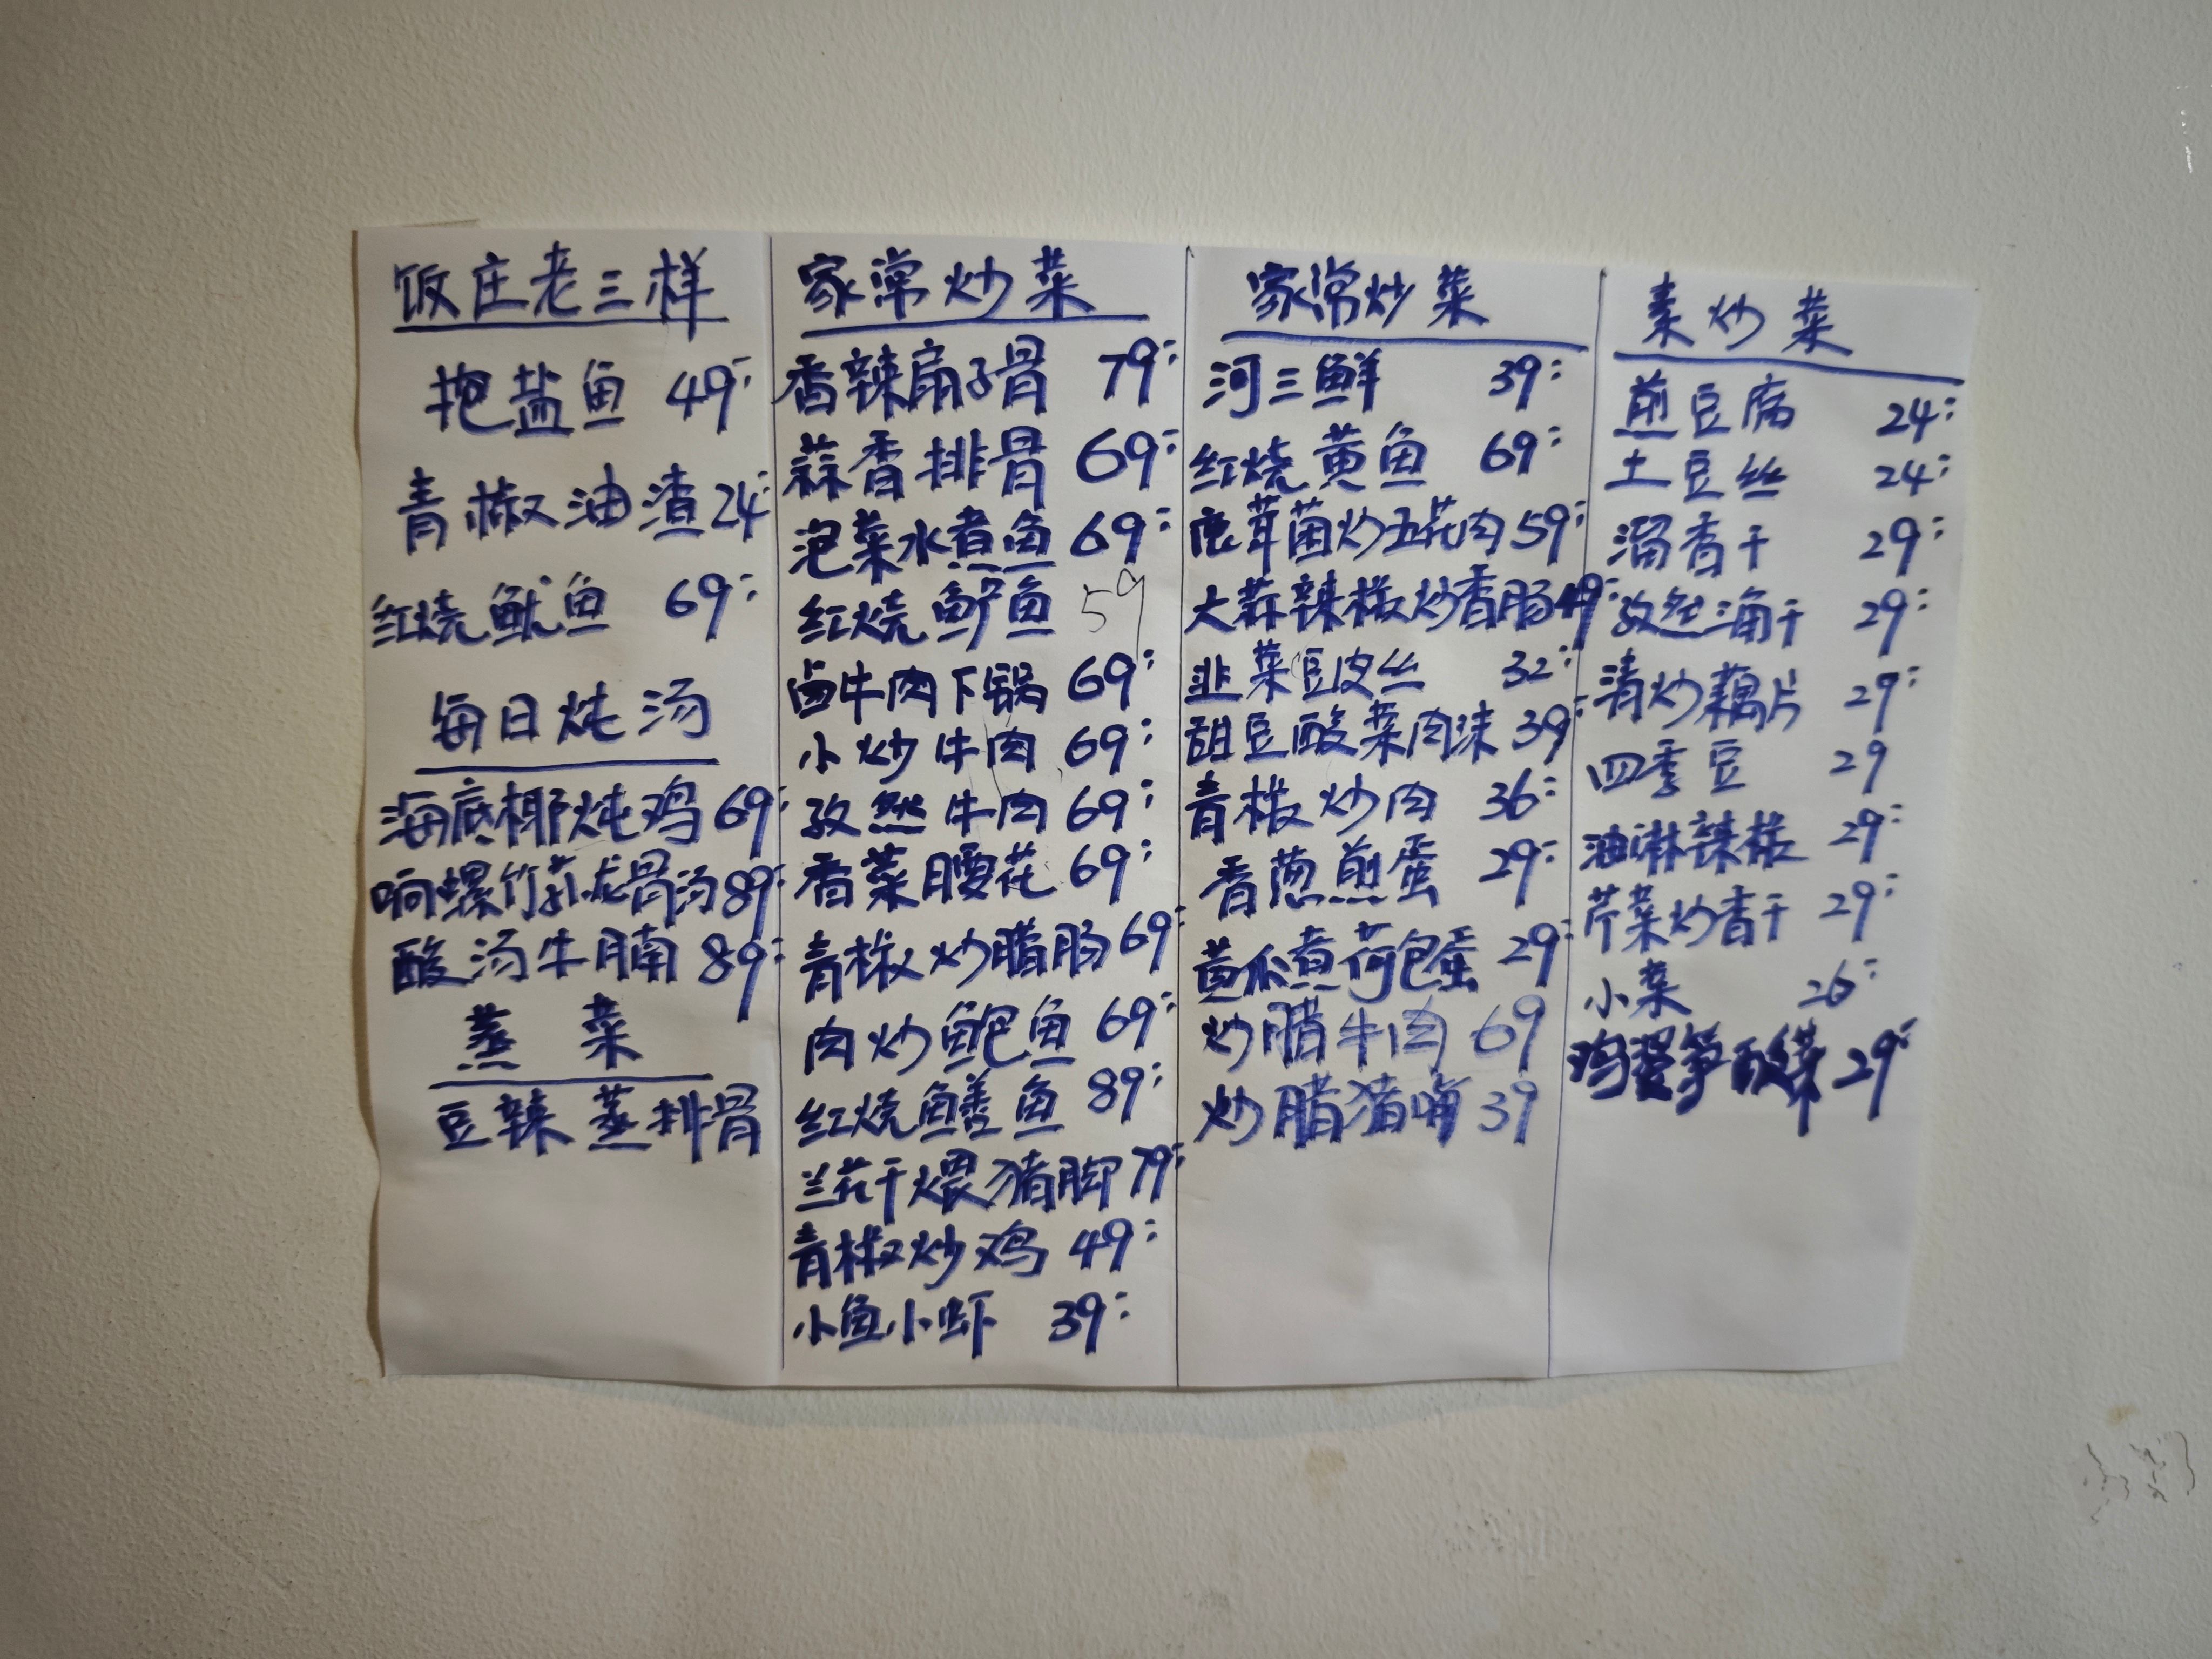 饭庄老三样
抱盐鱼 49
青椒油渣 24
红烧鱿鱼 69
每日炖汤
海底椰炖鸡 69
响螺竹荪龙骨汤 89
酸汤牛腩 89
蒸菜
豆辣蒸排骨
家常炒菜
香辣扇子骨 79
蒜香排骨 69
泡菜水煮鱼 69
红烧鲈鱼 59
卤牛肉下锅 69
小炒牛肉 69
孜然牛肉 69
香菜腰花 69
青椒炒腊肠 69
肉炒鲍鱼 69
红烧鳝鱼 89
兰花干煨猪脚 79
青椒炒鸡 49
小鱼小虾 39
家常炒菜
河三鲜 39
红烧黄鱼 69
鹿茸菌炒五花肉 59
大蒜辣椒炒香肠 49
韭菜豆皮丝 32
甜豆酸菜肉沫 39
青椒炒肉 36
香葱煎蛋 29
黄瓜煮荷包蛋 29
炒腊牛肉 69
炒腊猪嘴 39
素炒菜
煎豆腐 24
土豆丝 24
溜香干 29
孜然湘干 29
清炒藕片 29
四季豆 29
油淋辣椒 29
芹菜炒香干 29
小菜 26
酸菜 29